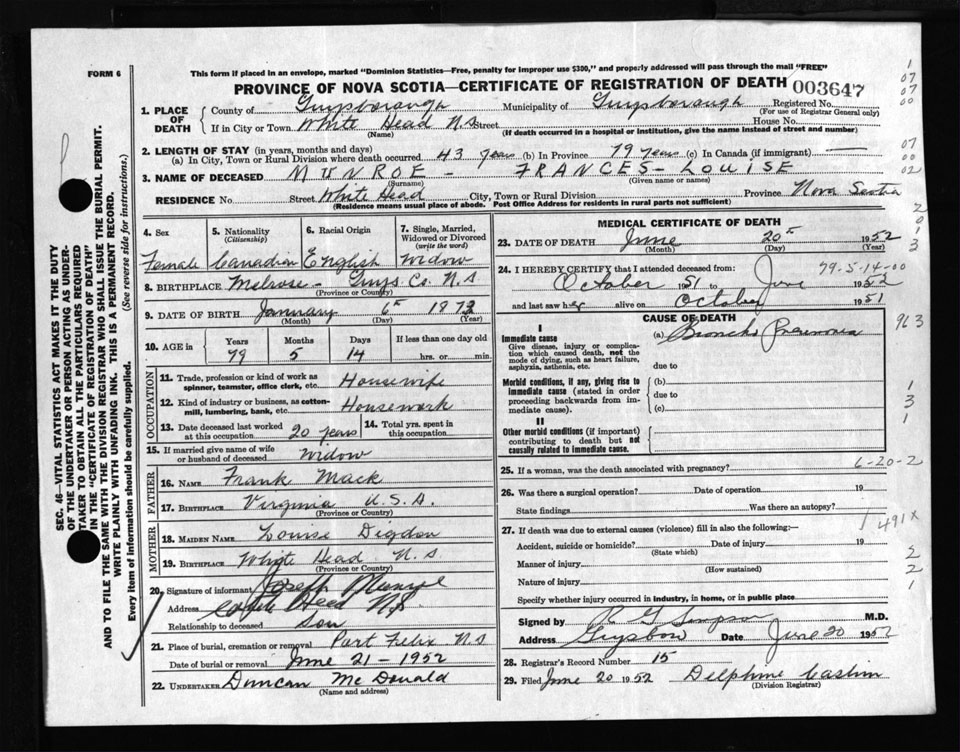 FORM 6
This form if placed in an envelope, marked "Dominion Statistics—Free, penalty for improper use $300," and properly addressed will pass through the mail "FREE"
PROVINCE OF NOVA SCOTIA—CERTIFICATE OF REGISTRATION OF DEATH 003647
1. PLACE OF DEATH
County of Guysborough Municipality of Guysborough Registered No.
(For use of Registrar General only)
If in City or Town White Head N.S. Street House No.
(Name) (If death occurred in a hospital or institution, give the name instead of street and number)
2. LENGTH OF STAY (in years, months and days)
(a) In City, Town or Rural Division where death occurred 43 years (b) In Province 79 years (c) In Canada (if immigrant) —
3. NAME OF DECEASED MUNROE - FRANCES - LOUISE
(Surname) (Given name or names)
RESIDENCE No. Street White Head City, Town or Rural Division Province Nova Scotia
(Residence means usual place of abode. Post Office Address for residents in rural parts not sufficient)
SEC. 46—VITAL STATISTICS ACT MAKES IT THE DUTY
OF THE UNDERTAKER OR PERSON ACTING AS UNDER-
TAKER TO OBTAIN ALL THE PARTICULARS REQUIRED
IN THE "CERTIFICATE OF REGISTRATION OF DEATH"
AND TO FILE THE SAME WITH THE DIVISION REGISTRAR WHO SHALL ISSUE THE BURIAL PERMIT.
WRITE PLAINLY WITH UNFADING INK. THIS IS A PERMANENT RECORD.
Every item of information should be carefully supplied. (See reverse side for instructions.)
4. Sex 5. Nationality (Citizenship) 6. Racial Origin 7. Single, Married, Widowed or Divorced (write the word)
Female Canadian English Widow
8. BIRTHPLACE Melrose - Guys. Co. N.S
(Province or Country)
9. DATE OF BIRTH January 6 187
(Month) (Day) (Year)
10. AGE in Years Months Days If less than one day old
79 5 14 hrs. or min.
OCCUPATION
11. Trade, profession or kind of work as spinner, teamster, office clerk, etc. Housewife
12. Kind of industry or business, as cotton-mill, lumbering, bank, etc. Housework
13. Date deceased last worked at this occupation 20 years 14. Total yrs. spent in this occupation
15. If married give name of wife or husband of deceased Widow
FATHER
16. NAME Frank Mack
17. BIRTHPLACE Virginia U.S.A.
(Province or Country)
MOTHER
18. MAIDEN NAME Louise Digdon
19. BIRTHPLACE White Head N.S.
(Province or Country)
20. Signature of informant Joseph
Address White Head N.S
Relationship to deceased Son
21. Place of burial, cremation or removal Port Felix N.S
Date of burial or removal June 21 - 1952
22. UNDERTAKER Duncan McDonald
(Name and address)
MEDICAL CERTIFICATE OF DEATH
23. DATE OF DEATH June 20 1952
(Month) (Day) (Year)
24. I HEREBY CERTIFY that I attended deceased from: 79-5-14-00
October 1951 to June 1952
and last saw her alive on October 1951
CAUSE OF DEATH
I
Immediate cause (a) Broncho Pneumonia
Give disease, injury or complication which caused death, not the mode of dying, such as heart failure, asphyxia, asthenia, etc.
due to
Morbid conditions, if any, giving rise to immediate cause (stated in order proceeding backwards from immediate cause).
(b)
due to
(c)
II
Other morbid conditions (if important) contributing to death but not causally related to immediate cause.
25. If a woman, was the death associated with pregnancy? 6-20-2
26. Was there a surgical operation? Date of operation 19
State findings Was there an autopsy?
27. If death was due to external causes (violence) fill in also the following:— 491X
Accident, suicide or homicide? Date of injury 19
(State which)
Manner of injury
(How sustained)
Nature of injury
Specify whether injury occurred in industry, in home, or in public place
Signed by R G Simpson M.D.
Address Guysboro Date June 20 1952
28. Registrar's Record Number 15
29. Filed June 20 1952 Delphine Cashin
(Division Registrar)
1
07
07
00
07
00
02
2
0
1
3
963
1
3
1
2
2
1